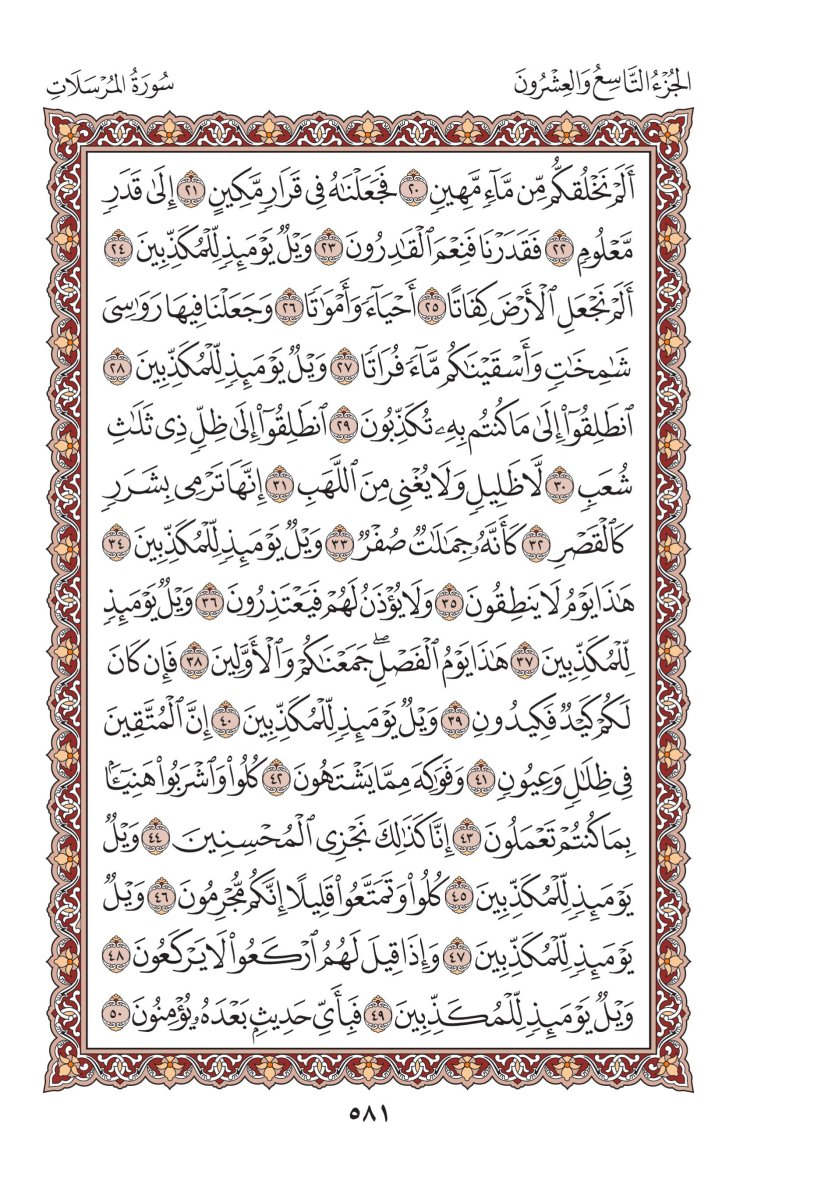 الجُزْءُ التَّاسِعُ وَالعِشْرُونَ
سُورَةُ المُرْسَلَاتِ
أَلَمْ نَخْلُقكُّم مِّن مَّآءٍ مَّهِينٍ ٢٠ فَجَعَلْنَٰهُ فِى قَرَارٍ مَّكِينٍ ٢١ إِلَىٰ قَدَرٍ
مَّعْلُومٍ ٢٢ فَقَدَرْنَا فَنِعْمَ ٱلْقَٰدِرُونَ ٢٣ وَيْلٌ يَوْمَئِذٍ لِّلْمُكَذِّبِينَ ٢٤
أَلَمْ نَجْعَلِ ٱلْأَرْضَ كِفَاتًا ٢٥ أَحْيَآءً وَأَمْوَٰتًا ٢٦ وَجَعَلْنَا فِيهَا رَوَٰسِىَ
شَٰمِخَٰتٍ وَأَسْقَيْنَٰكُم مَّآءً فُرَاتًا ٢٧ وَيْلٌ يَوْمَئِذٍ لِّلْمُكَذِّبِينَ ٢٨
ٱنطَلِقُوٓا۟ إِلَىٰ مَا كُنتُم بِهِۦ تُكَذِّبُونَ ٢٩ ٱنطَلِقُوٓا۟ إِلَىٰ ظِلٍّ ذِى ثَلَٰثِ
شُعَبٍ ٣٠ لَّا ظَلِيلٍ وَلَا يُغْنِى مِنَ ٱللَّهَبِ ٣١ إِنَّهَا تَرْمِى بِشَرَرٍ
كَٱلْقَصْرِ ٣٢ كَأَنَّهُۥ جِمَٰلَتٌ صُفْرٌ ٣٣ وَيْلٌ يَوْمَئِذٍ لِّلْمُكَذِّبِينَ ٣٤
هَٰذَا يَوْمُ لَا يَنطِقُونَ ٣٥ وَلَا يُؤْذَنُ لَهُمْ فَيَعْتَذِرُونَ ٣٦ وَيْلٌ يَوْمَئِذٍ
لِّلْمُكَذِّبِينَ ٣٧ هَٰذَا يَوْمُ ٱلْفَصْلِ ۖ جَمَعْنَٰكُمْ وَٱلْأَوَّلِينَ ٣٨ فَإِن كَانَ
لَكُمْ كَيْدٌ فَكِيدُونِ ٣٩ وَيْلٌ يَوْمَئِذٍ لِّلْمُكَذِّبِينَ ٤٠ إِنَّ ٱلْمُتَّقِينَ
فِى ظِلَٰلٍ وَعُيُونٍ ٤١ وَفَوَٰكِهَ مِمَّا يَشْتَهُونَ ٤٢ كُلُوا۟ وَٱشْرَبُوا۟ هَنِيٓـًٔۢا
بِمَا كُنتُمْ تَعْمَلُونَ ٤٣ إِنَّا كَذَٰلِكَ نَجْزِى ٱلْمُحْسِنِينَ ٤٤ وَيْلٌ
يَوْمَئِذٍ لِّلْمُكَذِّبِينَ ٤٥ كُلُوا۟ وَتَمَتَّعُوا۟ قَلِيلًا إِنَّكُم مُّجْرِمُونَ ٤٦ وَيْلٌ
يَوْمَئِذٍ لِّلْمُكَذِّبِينَ ٤٧ وَإِذَا قِيلَ لَهُمُ ٱرْكَعُوا۟ لَا يَرْكَعُونَ ٤٨
وَيْلٌ يَوْمَئِذٍ لِّلْمُكَذِّبِينَ ٤٩ فَبِأَىِّ حَدِيثٍۭ بَعْدَهُۥ يُؤْمِنُونَ ٥٠
٥٨١